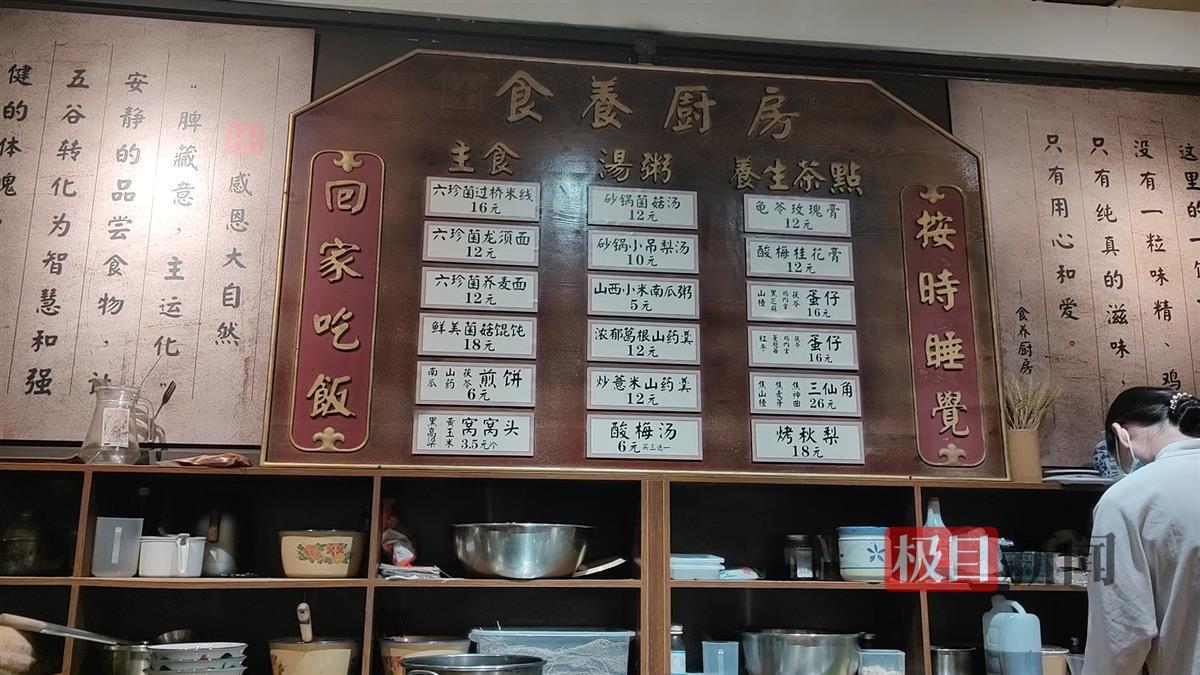 感恩大自然
“脾藏意，主运化”
安静的品尝食物，
五谷转化为智慧和强
健的体魄
食養厨房
回家吃飯
按時睡覺
主食
六珍菌过桥米线
16元
六珍菌龙须面
12元
六珍菌荞麦面
12元
鲜美菌菇馄饨
18元
南瓜 山药 茯苓 煎饼
6元
黑高粱 黄玉米 窝窝头
3.5元/个
湯粥
砂锅菌菇汤
12元
砂锅小吊梨汤
10元
山西小米南瓜粥
5元
浓郁葛根山药羹
12元
炒薏米山药羹
12元
酸梅汤
6元 买三送一
養生茶點
龟苓玫瑰膏
12元
酸梅桂花膏
12元
山楂 黑芝麻 鸡内金 茯苓 蛋仔
16元
红枣 蔓越莓 鸡内金 茯苓 蛋仔
16元
焦山楂 焦麦芽 焦神曲 三仙角
26元
烤秋梨
18元
这里的一
没有一粒味精、鸡
只有纯真的滋味
只有用心和爱。
食养厨房
极目新闻